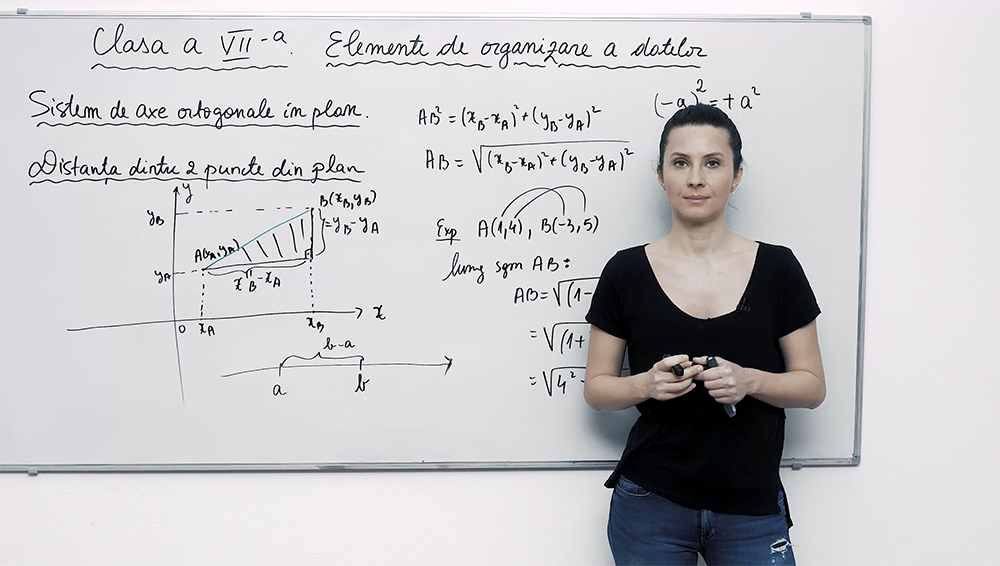 Clasa a VII-a. Elemente de organizare a datelor
Sistem de axe ortogonale în plan.
Distanța dintre 2 puncte din plan
y
B(x_B, y_B)
y_B
= y_B - y_A
A(x_A, y_A)
y_A
x_B - x_A
O x_A x_B x
b-a
a b
(-a)² = + a²
AB² = (x_B - x_A)² + (y_B - y_A)²
AB = √(x_B - x_A)² + (y_B - y_A)²
Exp A(1,4), B(-3,5)
lung sgm AB:
AB = √(1-
= √(1+
= √4²